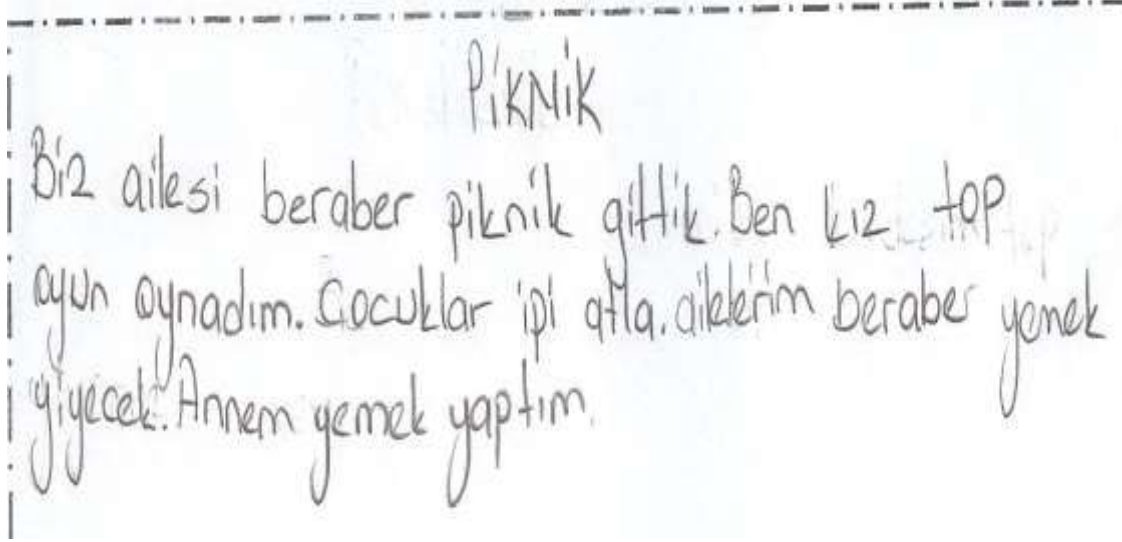 PİKNİK
Biz ailesi beraber piknik gittik. Ben kız top
oyun oynadım. Çocuklar ipi atla. ailelerim beraber yemek
yiyecek. Annem yemek yaptım.